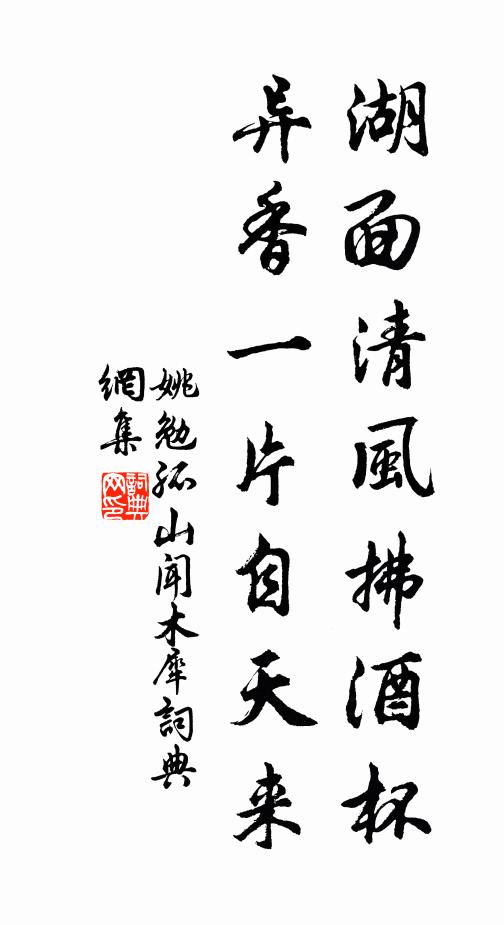 湖面清風拂酒杯
异香一片自天来
姚勉孤山闻木犀詞典
網集
詞典网印